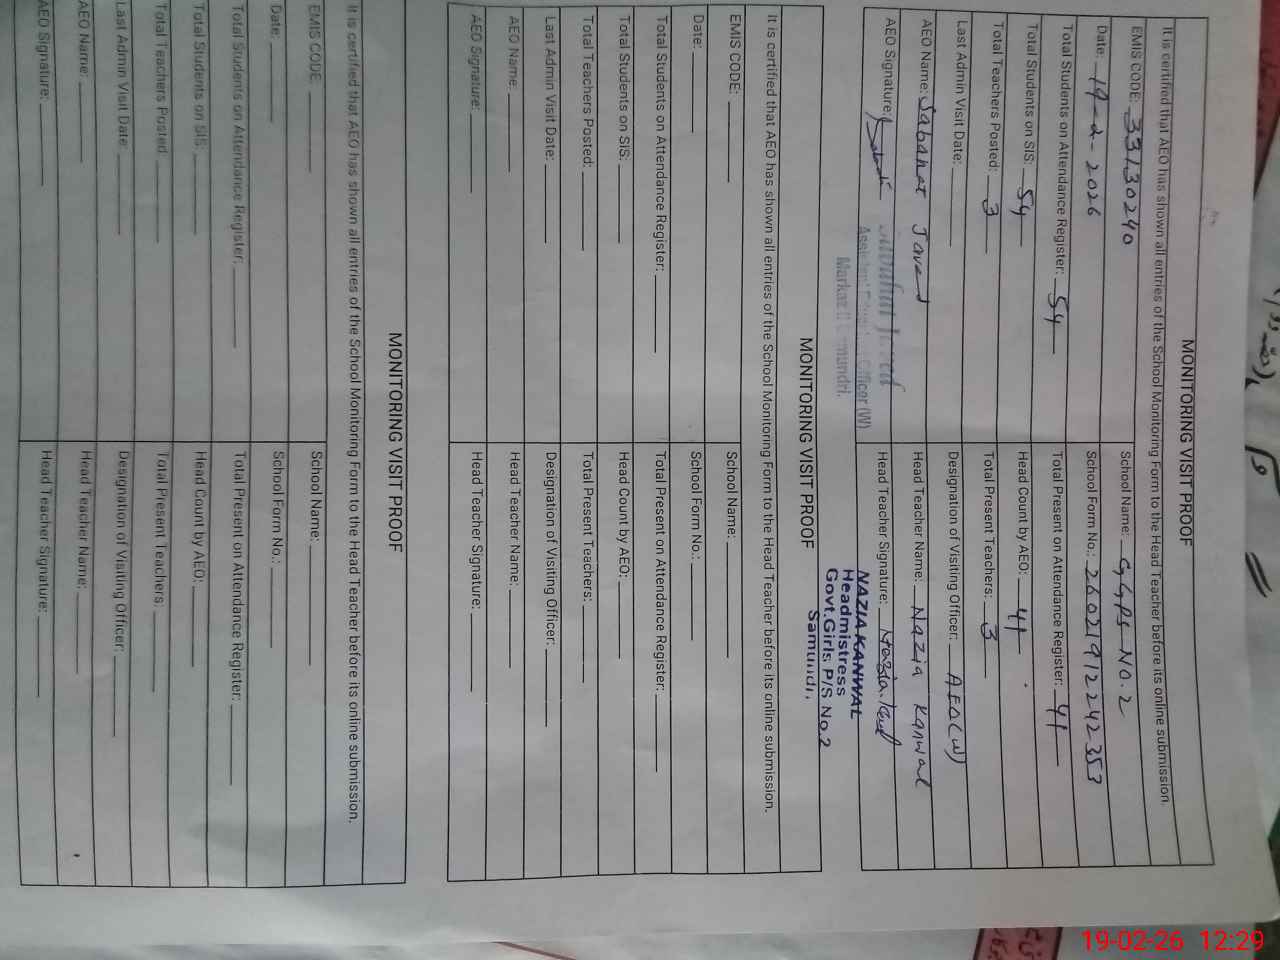 MONITORING VISIT PROOF
It is certified that AEO has shown all entries of the School Monitoring Form to the Head Teacher before its online submission.
EMIS CODE: 33130240 School Name: GGPS NO.2
Date: 19-2-2026 School Form No.: 26021912242353
Total Students on Attendance Register: 54 Total Present on Attendance Register: 41
Total Students on SIS: 54 Head Count by AEO: 41
Total Teachers Posted: 3 Total Present Teachers: 3
Last Admin Visit Date: Designation of Visiting Officer: AEO(W)
AEO Name: Sabahat Javed Head Teacher Name: Nazia Kanwal
AEO Signature: Head Teacher Signature:
Sabahat Javed
Assistant Education Officer (W)
Markaz Samundri.
NAZIA KANWAL
Headmistress
Govt.Girls P/S No.2
Samundri.
MONITORING VISIT PROOF
It is certified that AEO has shown all entries of the School Monitoring Form to the Head Teacher before its online submission.
EMIS CODE: School Name:
Date: School Form No.:
Total Students on Attendance Register: Total Present on Attendance Register:
Total Students on SIS: Head Count by AEO:
Total Teachers Posted: Total Present Teachers:
Last Admin Visit Date: Designation of Visiting Officer:
AEO Name: Head Teacher Name:
AEO Signature: Head Teacher Signature:
MONITORING VISIT PROOF
It is certified that AEO has shown all entries of the School Monitoring Form to the Head Teacher before its online submission.
EMIS CODE School Name:
Date: School Form No.:
Total Students on Attendance Register: Total Present on Attendance Register:
Total Students on SIS: Head Count by AEO:
Total Teachers Posted: Total Present Teachers:
Last Admin Visit Date: Designation of Visiting Officer:
AEO Name: Head Teacher Name:
AEO Signature: Head Teacher Signature:
19-02-26 12:29